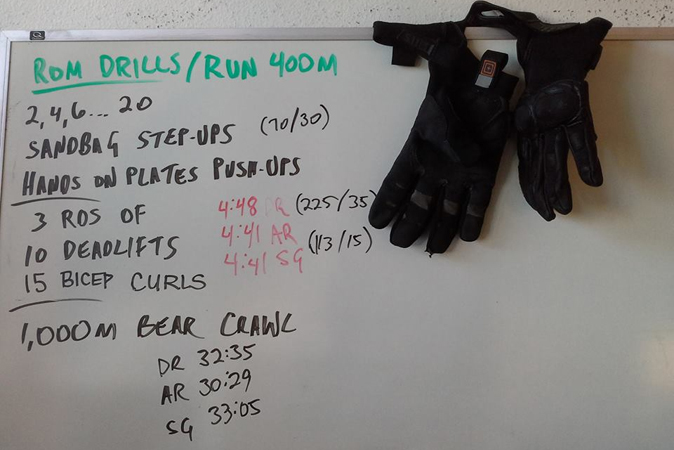 ROM DRILLS/RUN 400M
2,4,6... 20
SANDBAG STEP-UPS (70/30)
HANDS ON PLATES PUSH-UPS
3 ROS OF 4:48 DR (225/35)
10 DEADLIFTS 4:41 AR (113/15)
15 BICEP CURLS 4:41 SG
1,000M BEAR CRAWL
DR 32:35
AR 30:29
SG 33:05